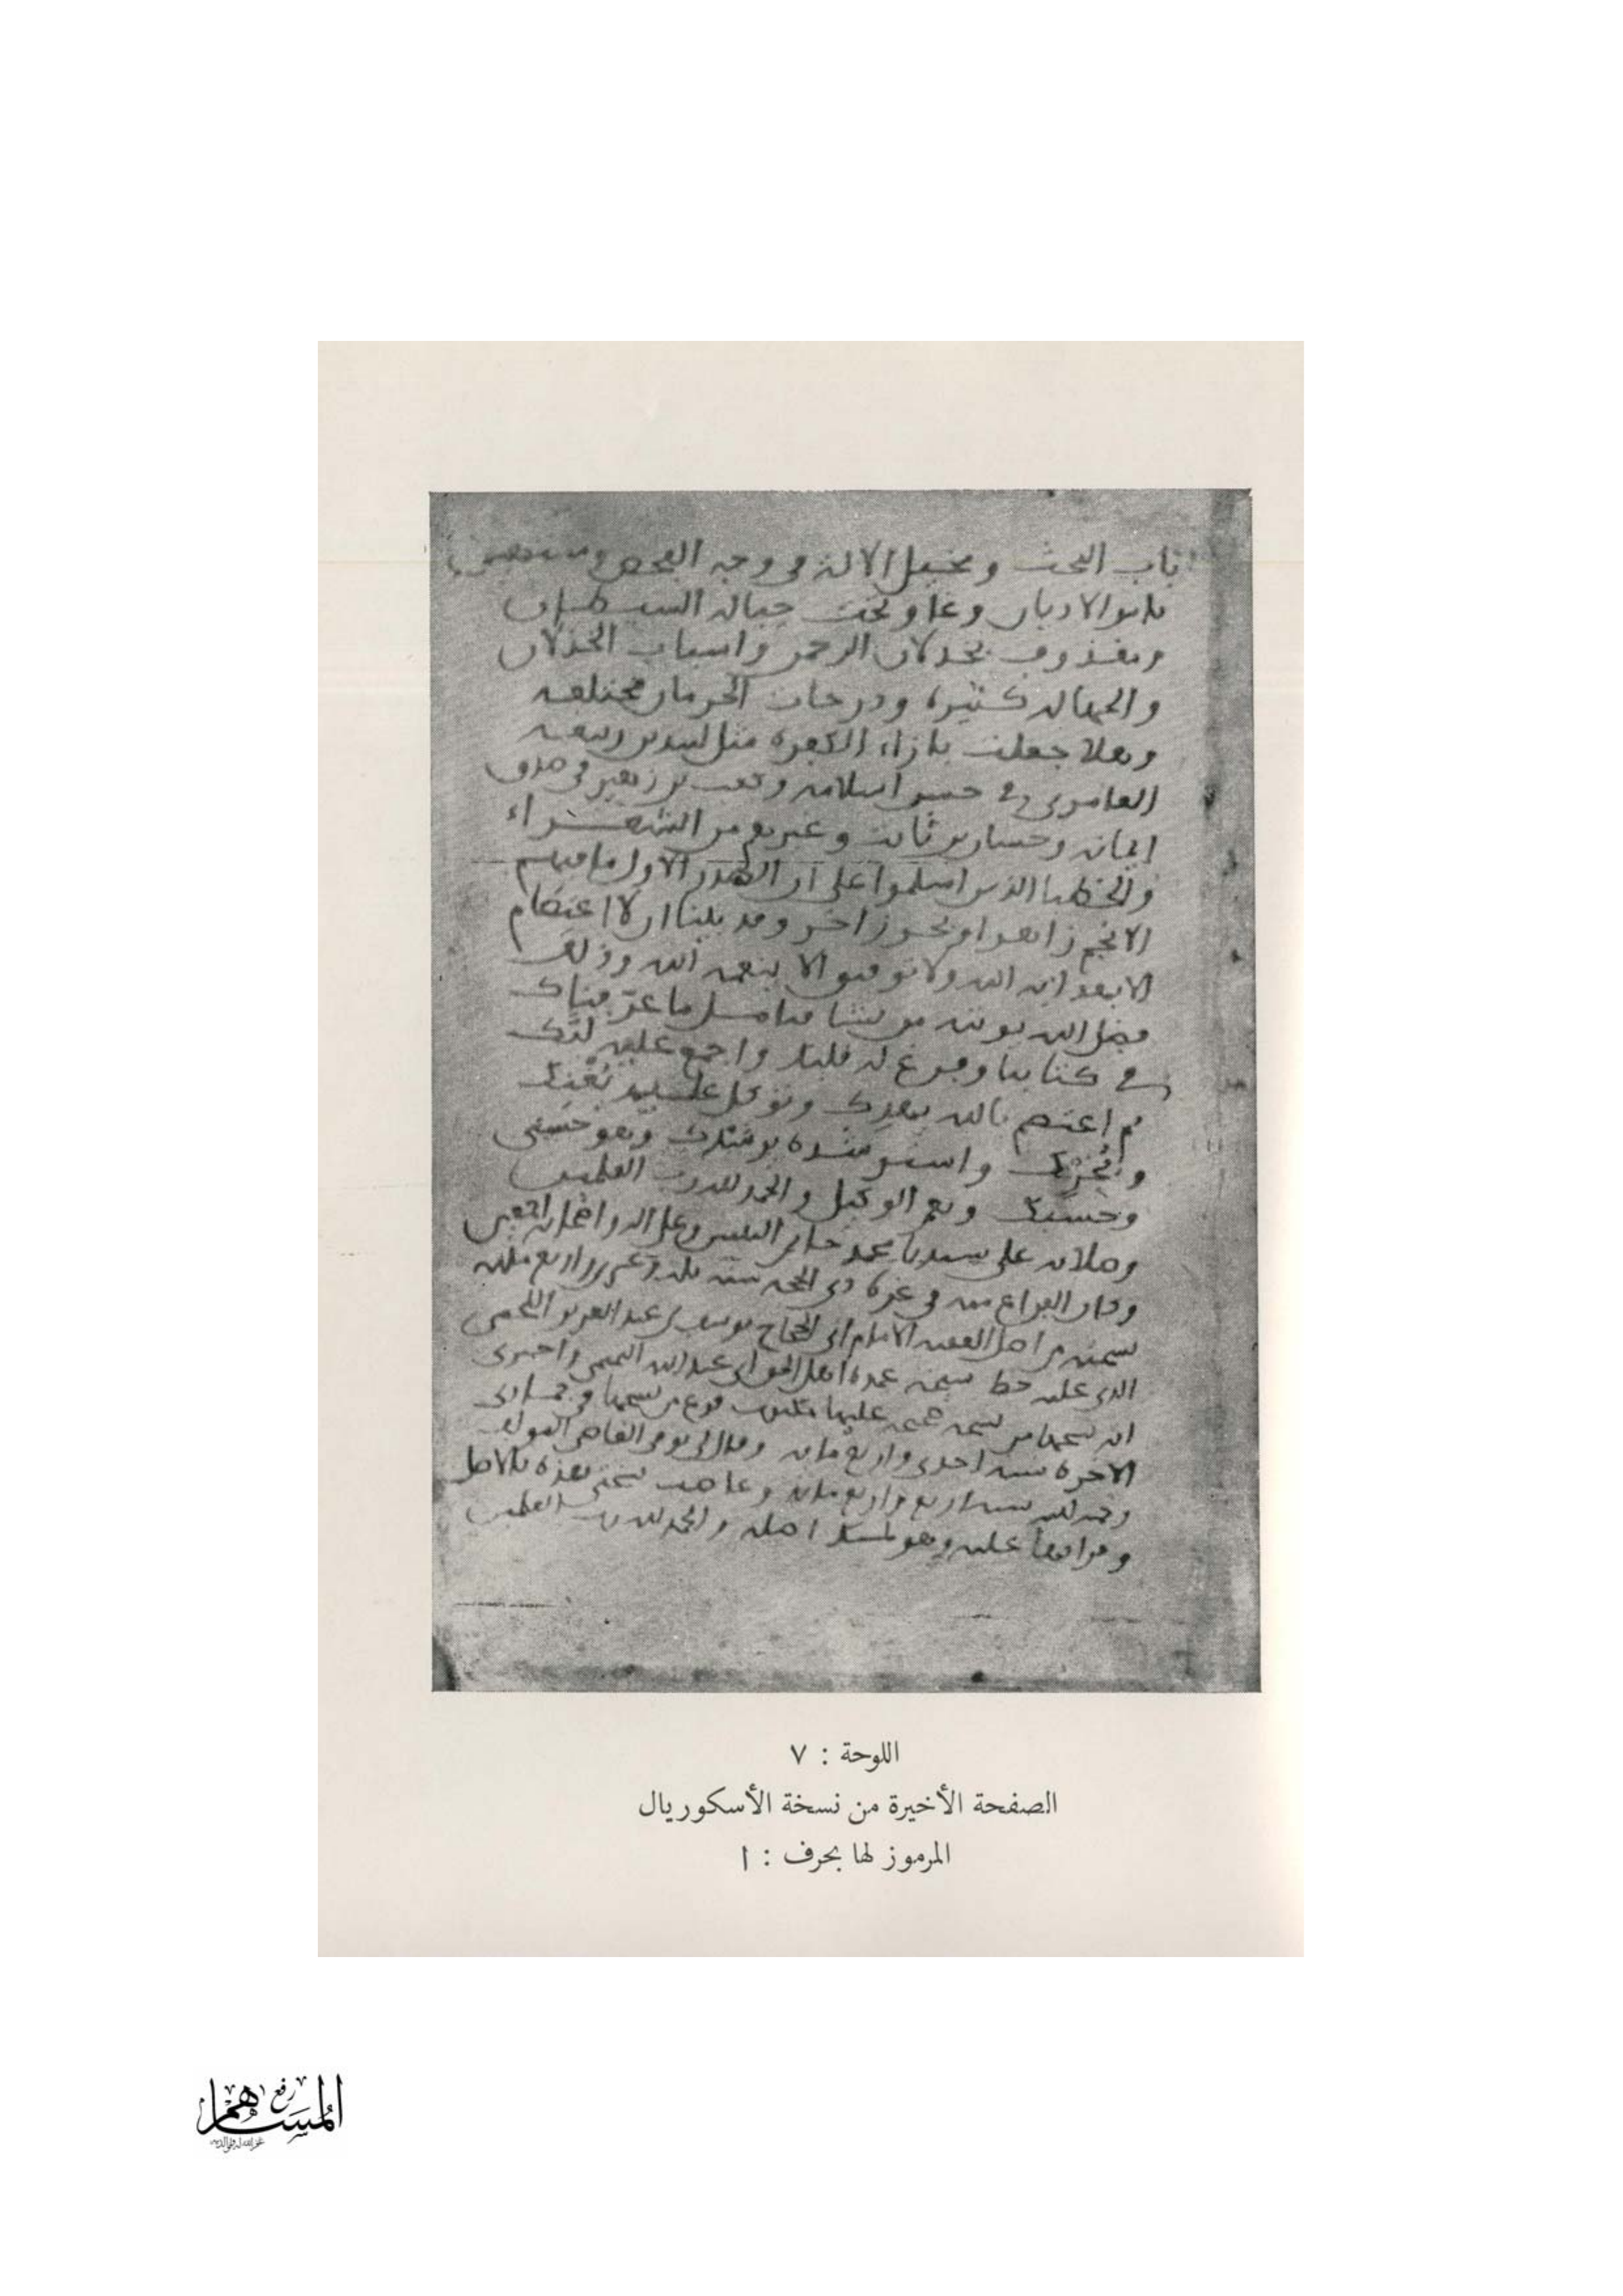 باب البحث و الآلة في وجه الفحص
بابوالادبار وغا و تحت حبالة الشيطان
و بخدلان الرحمن واسباب الخذلان
والجهالة كثيرة ودرجات الحرمان مختلفة
وهلا جعلت بازاء الكفرة مثل لبيد بن ربيعة
العامري في حسن اسلامه وكعب بن زهير في صدق
ايمانه وحسان بن ثابت وغيرهم من الشعراء
والخطبا الذين اسلموا على ان الصدر الاول ما فيهم
الا نجم زاهر او بحر زاخر وقد بينا ان لا اعتصام
الا بهداية الله ولا توفيق الا بنعمة الله وذلك
فضل الله يوتيه من يشا فتامل ما عرّفناك
في كتابنا وفرغ له قلبك واجمع عليه لبّك
ثم اعتصم بالله يهدك وتوكل عليه يُغنِك
و واسترشده يرشدك وهو حَسْبي
وحَسْبك ونعم الوكيل والحمد لله رب العلمين
وصلاته على سيدنا محمد خاتم النبيين وعلى اله واصحابه اجمعين
وكان الفراغ منه في غرة ذي الحجة سنة واربع مائة
نسخته من اصل الفقيه الامام ابي الحجاج يوسف بن عبد العزيز اللخمي
الذي عليه خط ابي عبد الله التميمي واخبرني
انه نسخها من نسخة عليها مكتوب فرغ من نسخها في جمادى
الاخرة سنة احدى واربع مائة وقال لي توفي القاضي المولف
رحمه الله سنة اربع واربع مائة وعارضت نسختي هذه بالاصل
وقراتها عليه وهو يمسك اصله والحمد لله رب العلمين
اللوحة : ٧
الصفحة الأخيرة من نسخة الأسكوريال
المرموز لها بحرف : ا
رفع
المساهم
غفر الله له ولوالديه